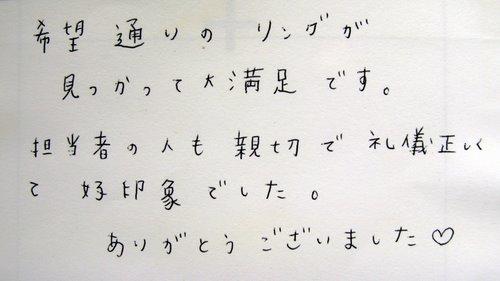 希望通りのリングが
見つかって大満足です。
担当者の人も親切で礼儀正しく
て好印象でした。
ありがとうございました♡